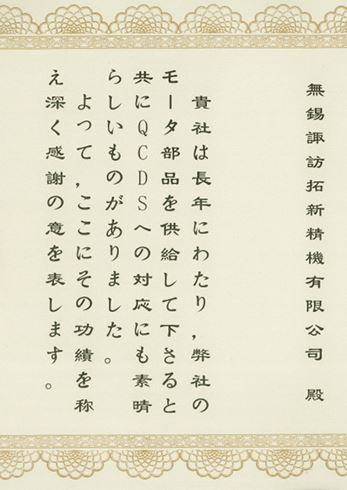 無錫諏訪拓新精機有限公司 殿
貴社は長年にわたり,弊社の
モータ部品を供給して下さると
共にQCDSへの対応にも素晴
らしいものがありました。
よって,ここにその功績を称
え深く感謝の意を表します。